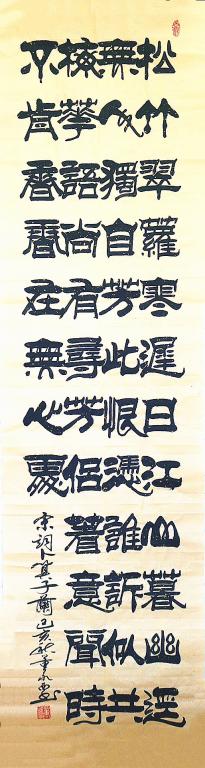 松竹翠羅寒遲日江山暮幽逕
無人獨自芳此恨憑誰訴似共
梅華語尚有尋芳侶著意聞時
不肯香香在無心處
宋詞卜算子蘭己亥秋